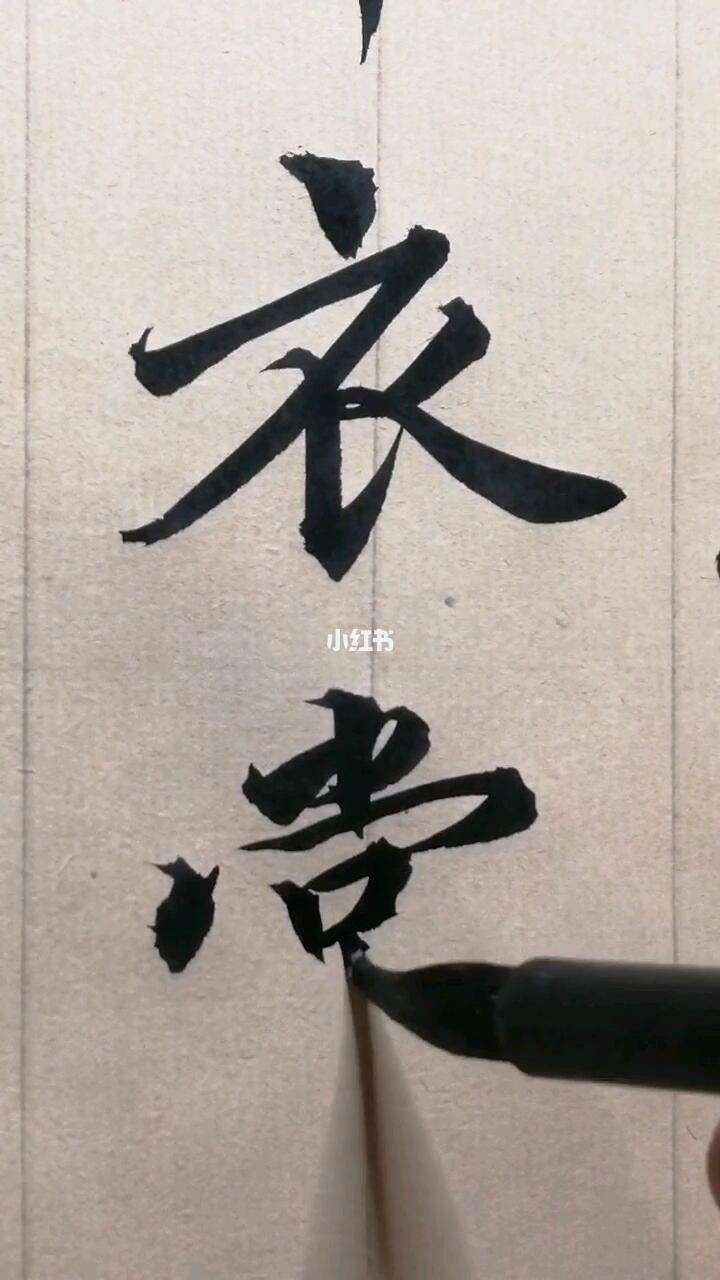 衣
小红书